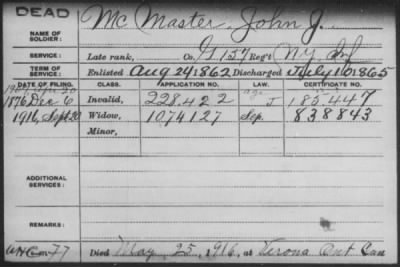 DEAD
Mc Master, John J.
NAME OF SOLDIER:
SERVICE: Late rank, Co. G 157 Reg't N.Y. Inf
TERM OF SERVICE: Enlisted Aug 29 1862 Discharged July 10 1865
DATE OF FILING. CLASS. APPLICATION NO. LAW. CERTIFICATE NO.
1876 Dec 6 Invalid, 228.422 J 185.447
1916, Sept 20 Widow, 1074127 Sep. 838843
Minor,
ADDITIONAL SERVICES:
REMARKS:
Died May 25, 1916, at Verona Ont Can